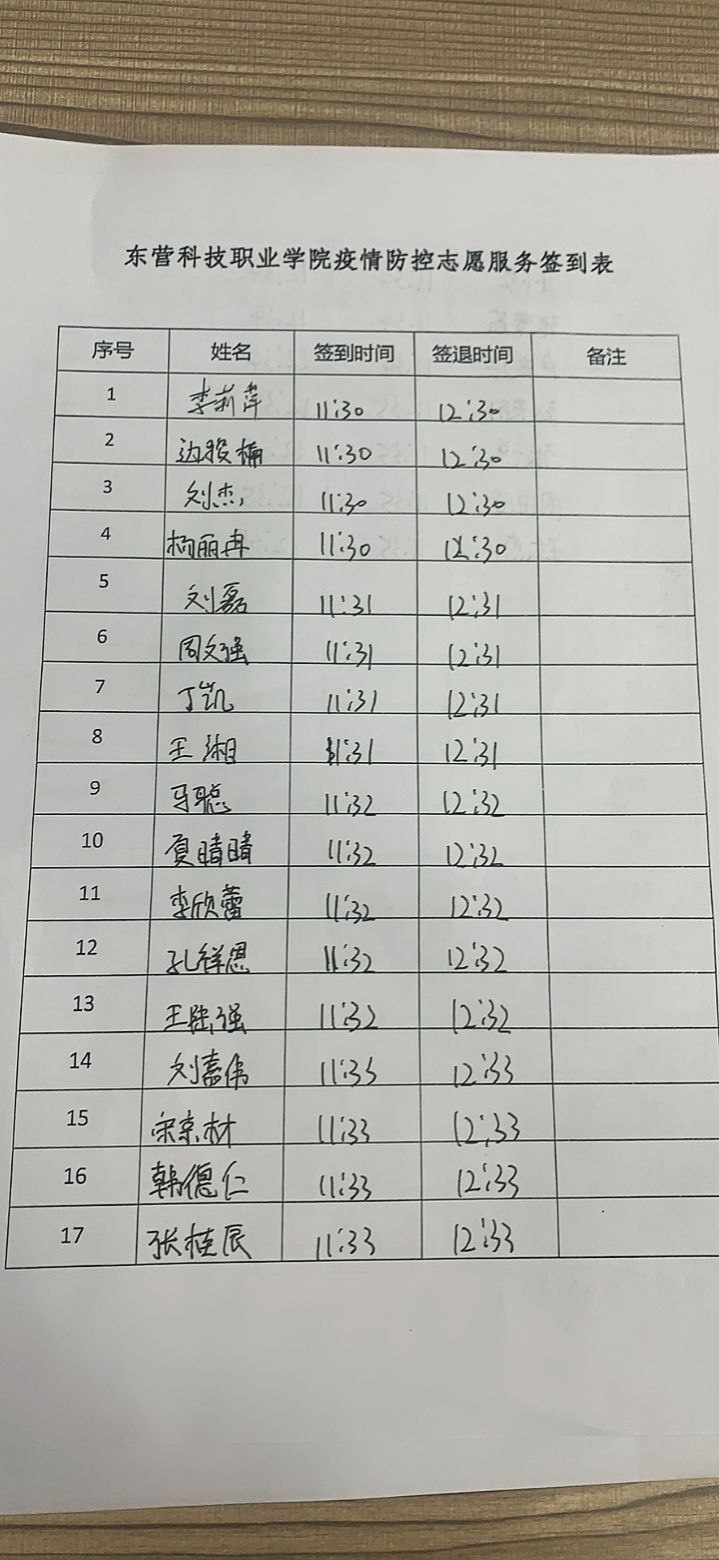 东营科技职业学院疫情防控志愿服务签到表
序号 姓名 签到时间 签退时间 备注
1 李莉萍 11:30 12:30
2 边骏楠 11:30 12:30
3 刘杰 11:30 12:30
4 杨丽冉 11:30 12:30
5 刘磊 11:31 12:31
6 周文强 11:31 12:31
7 丁凯 11:31 12:31
8 王湘 11:31 12:31
9 马聪 11:32 12:32
10 夏晴晴 11:32 12:32
11 李欣蕾 11:32 12:32
12 孔祥恩 11:32 12:32
13 11:32 12:32
14 刘嘉伟 11:33 12:33
15 11:33 12:33
16 韩德仁 11:33 12:33
17 张桂辰 11:33 12:33